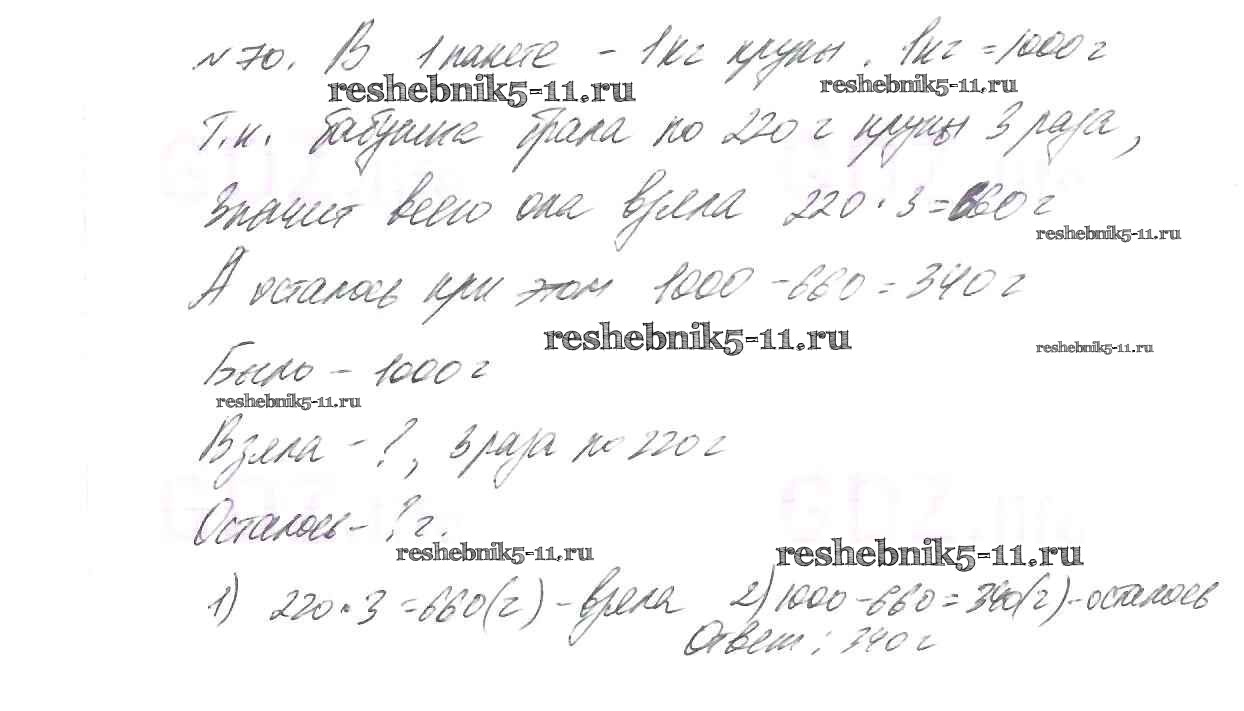 №70. В 1 пакете - 1 кг крупы. 1кг = 1000 г
reshebnik5-11.ru reshebnik5-11.ru
Т.к. бабушка брала по 220 г крупы 3 раза,
Значит всего она взяла 220 · 3 = 660 г
reshebnik5-11.ru
А осталось при этом 1000 - 660 = 340 г
reshebnik5-11.ru reshebnik5-11.ru
Было - 1000 г
reshebnik5-11.ru
Взяла - ?, 3 раза по 220 г
Осталось - ? г.
reshebnik5-11.ru reshebnik5-11.ru
1) 220 · 3 = 660 (г) - взяла 2) 1000 - 660 = 340 (г) - осталось
Ответ: 340 г